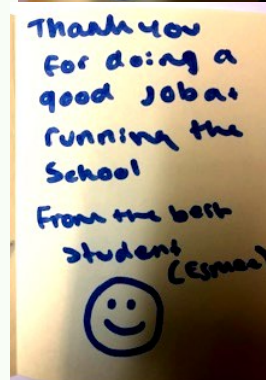 Thank you
For doing a
good Job at
running the
School
From the best
student
(Esmae)